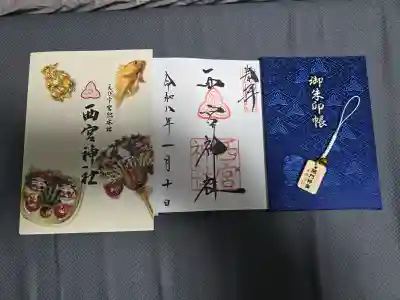 えびす宮総本社
西宮神社
奉拝
西宮神社
西宮神社
令和八年一月十日
御朱印帳